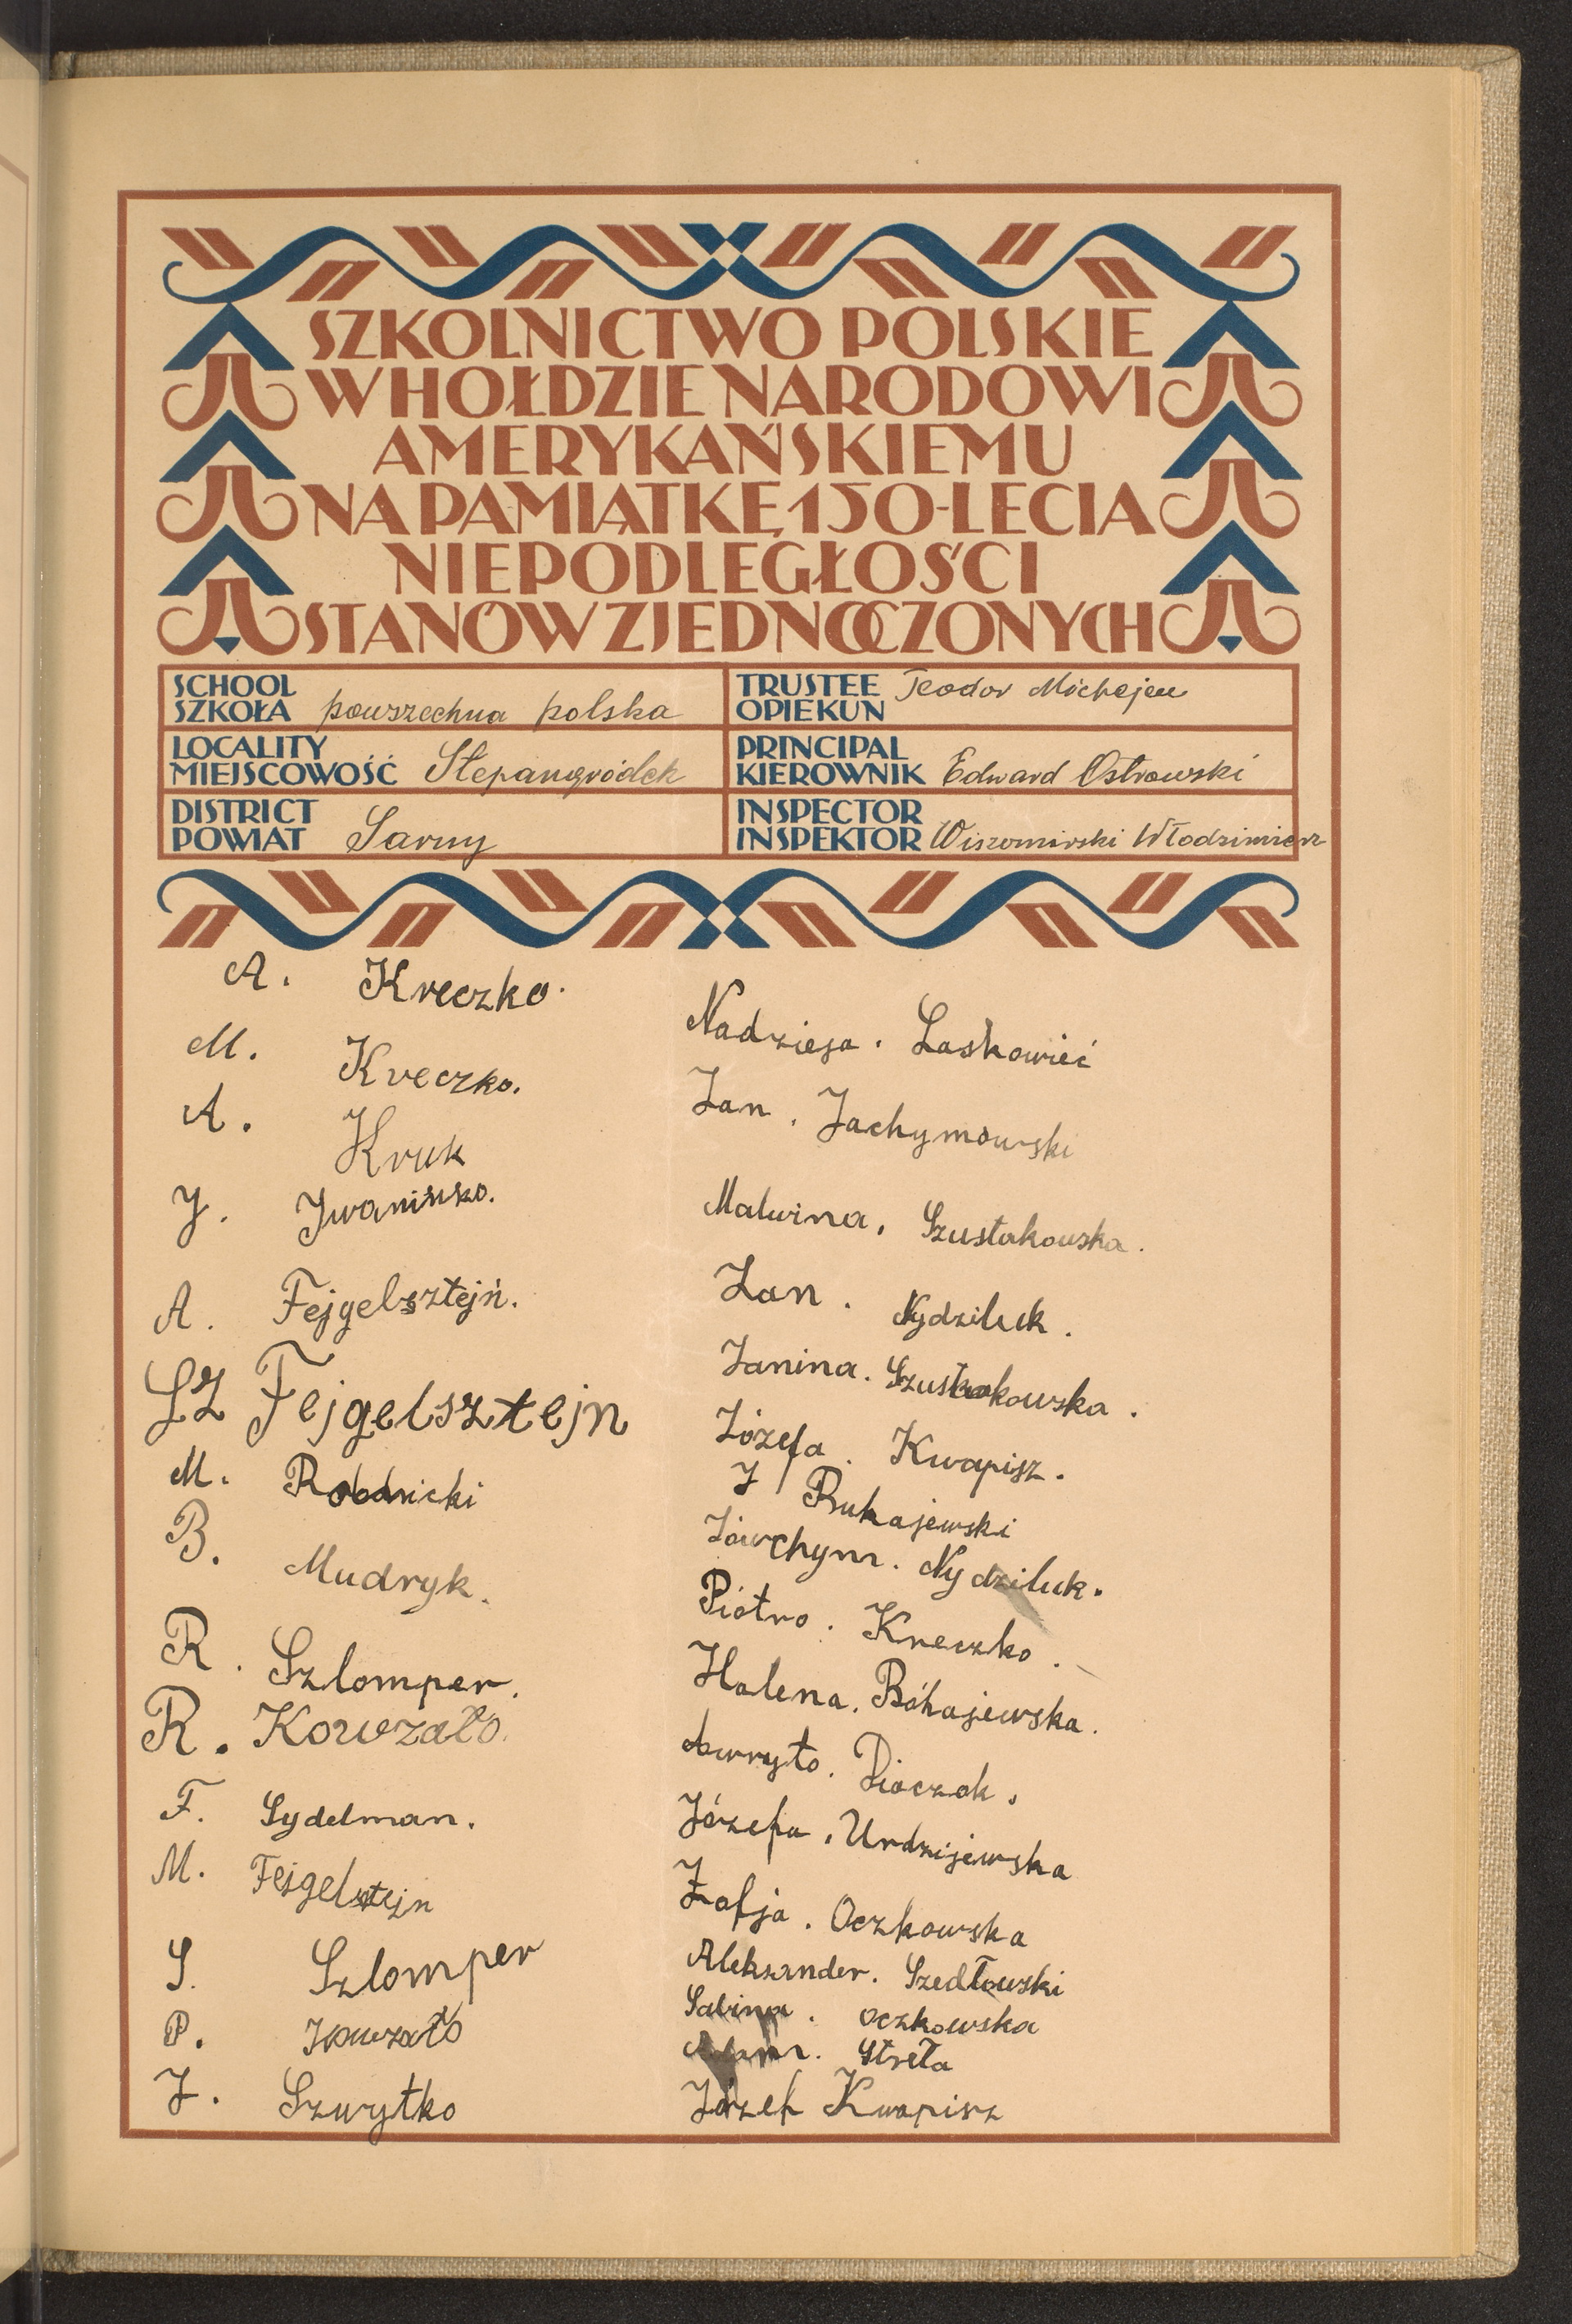 SZKOLNICTWO POLSKIE
W HOŁDZIE NARODOWI
AMERYKAŃSKIEMU
NA PAMIĄTKĘ 150-LECIA
NIEPODLEGŁOŚCI
STANÓW ZJEDNOCZONYCH
SCHOOL
SZKOŁA powszechna polska
TRUSTEE
OPIEKUN Teodor Michejew
LOCALITY
MIEJSCOWOŚĆ Stepangródek
PRINCIPAL
KIEROWNIK Edward Ostrowski
DISTRICT
POWIAT Sarny
INSPECTOR
INSPEKTOR Wiszomirski Włodzimierz
A. Kreczko.
M. Kreczko.
A. Kruk
J. Iwanisko.
A. Fejgelsztejń.
SZ Fejgelsztejn
M. Robnicki
B. Mudryk.
R. Szlomper.
R. Kowzało.
F. Sydelman.
M. Fejgelsztejn
S. Szlomper
P. Kowzało
J. Szwytko
Nadzieja. Laskowieć
Jan. Jachymowski
Malwina. Szustakowska.
Jan. Nydziluk.
Janina. Szustakowska.
Józefa. Kwapisz.
J Buhajewski
Jówchym. Nydziluk.
Piótro. Kreczko.
Halena. Bóhajewska.
Pioczok.
Józefa. Urdzijewska
Zofja. Oczkowska
Aleksander. Szedłowski
Sabina. oczkowska
Streła
Józef Kwapisz